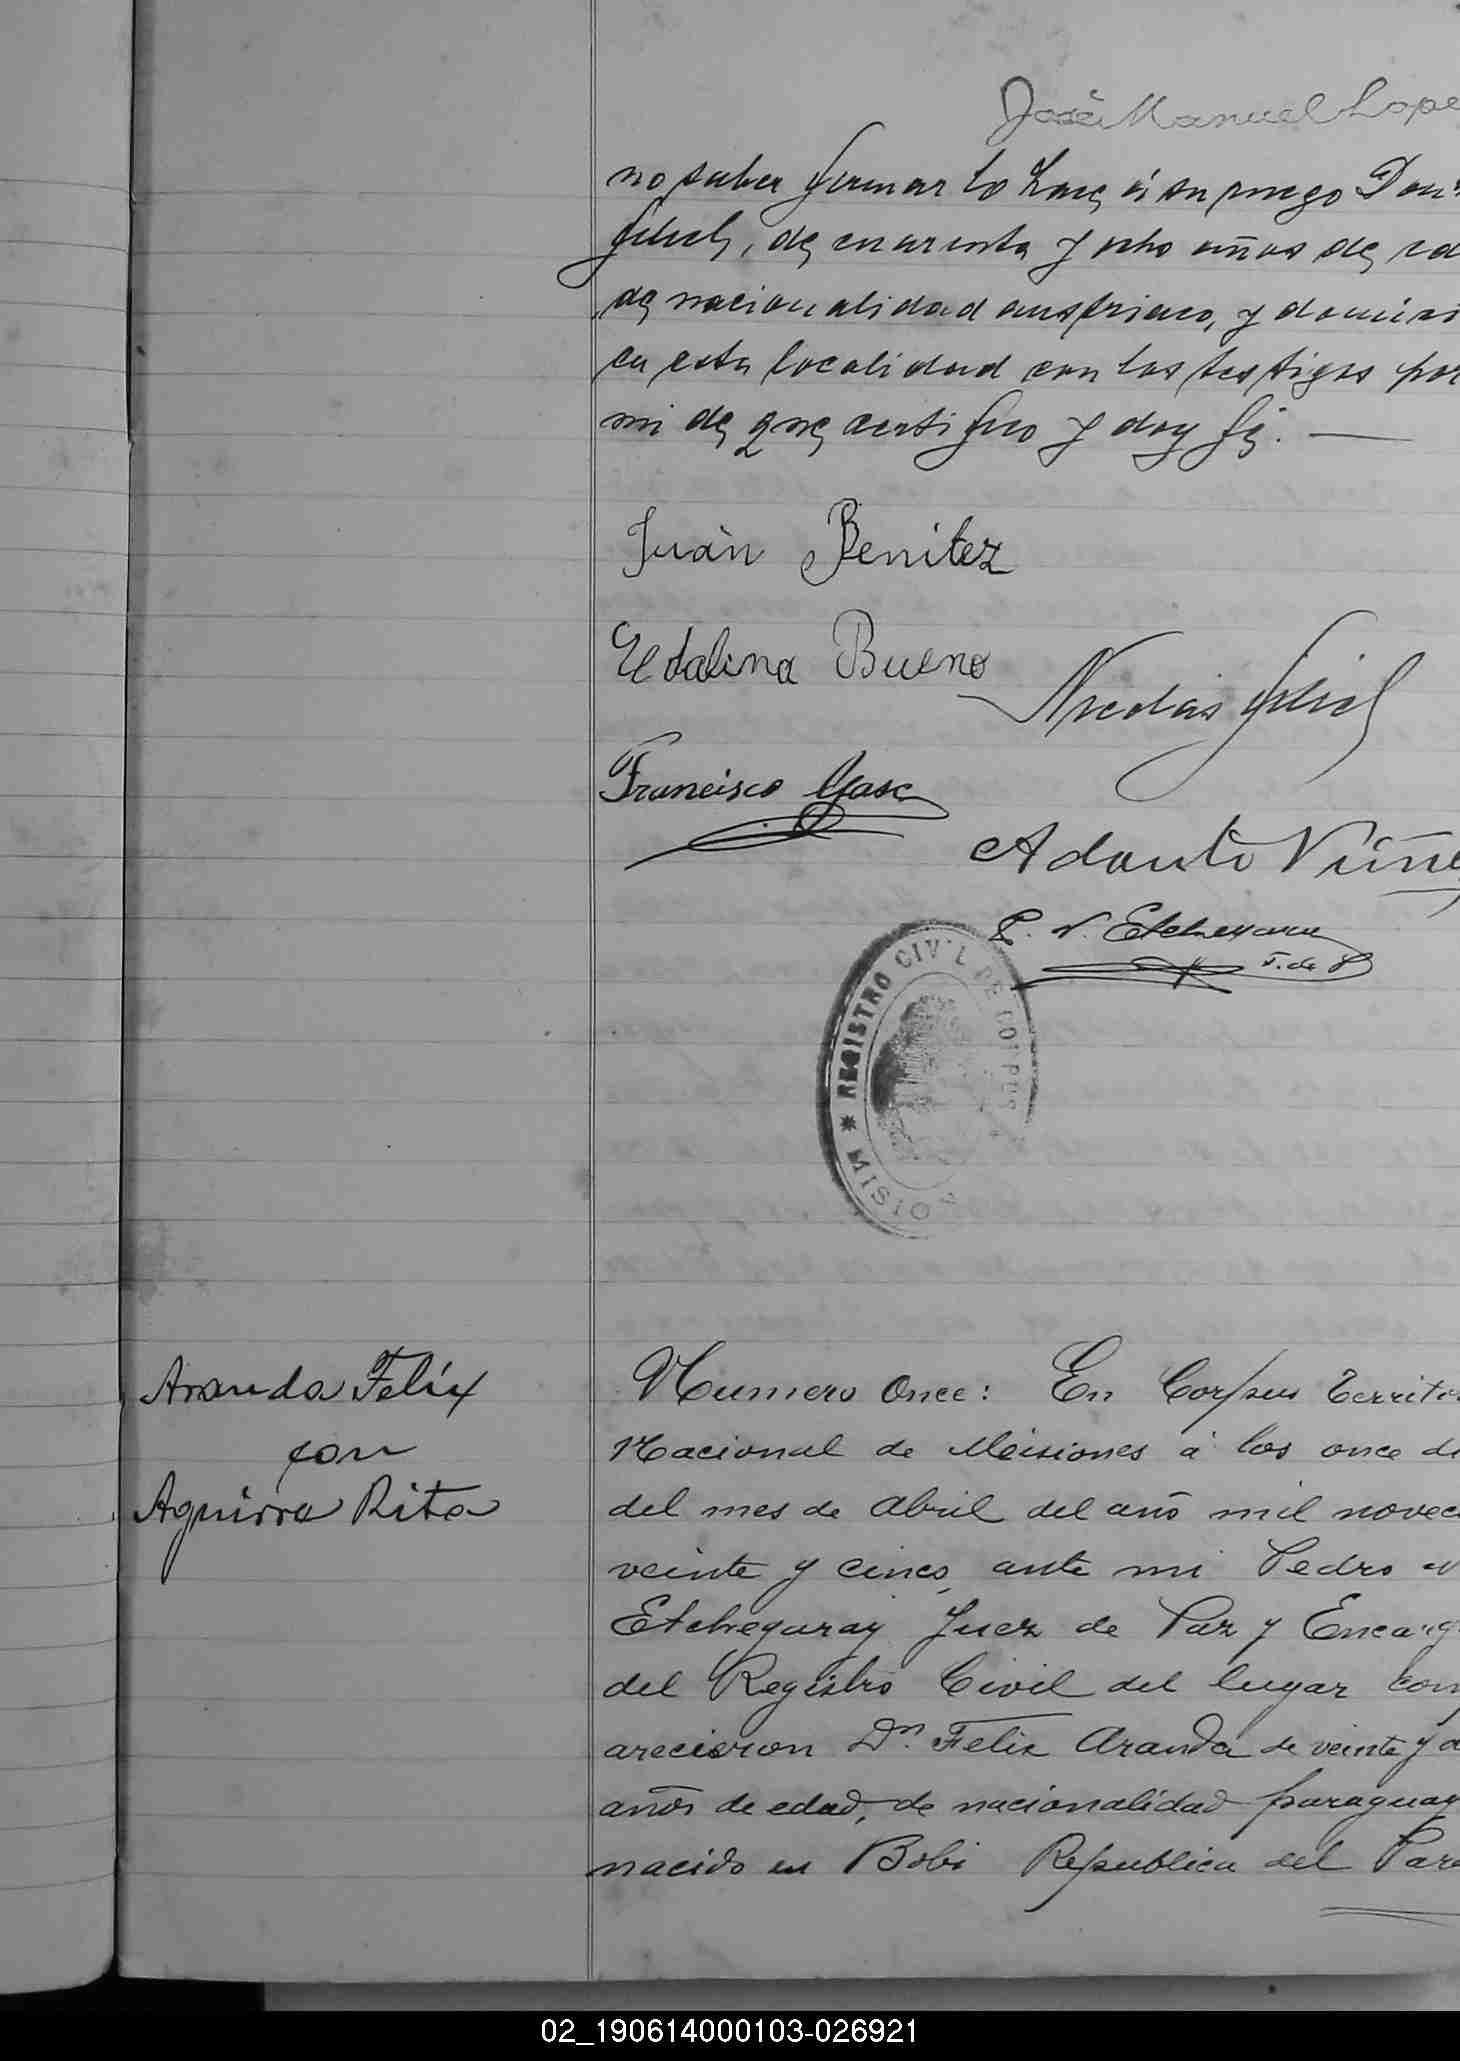 José Manuel Lope
no saber firmar lo hace á su ruego Don
de cuarenta y ocho años de ed
de nacionalidad austriaco, y domici
en esta localidad con los testigos por
mi de que certifico y doy fé.
Juán Benitez
Edalina Bueno
Nicolás
Francisco
Adanto Núñe
P. N. Etchegaray
J. de P
REGISTRO CIVIL DE CORPUS
* MISION
Aranda Felix
con
Aguirre Rita
Numero Once: En Corpus Territo
Nacional de Misiones á los once di
del mes de abril del año mil novec
veinte y cinco, ante mi Pedro N
Etchegaray Juez de Paz y Encarg
del Registro Civil del lugar com
arecieron Dn. Felix Aranda de veinte y
años de edad, de nacionalidad paraguay
nacido en Bobi Republica del Para
02_190614000103-026921